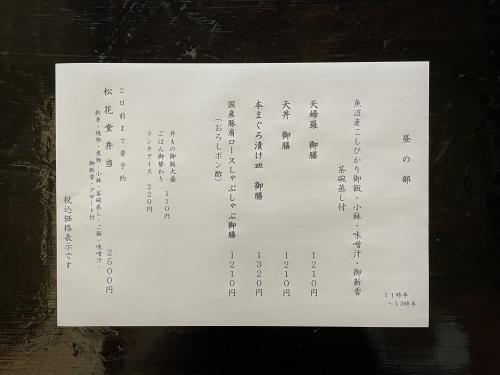 昼の部
11時半
～13時半
魚沼産こしひかり御飯・小鉢・味噌汁・御新香
茶碗蒸し付
天婦羅 御膳 1210円
天丼 御膳 1210円
本まぐろ漬け皿 御膳 1320円
国産豚肩ロースしゃぶしゃぶ御膳 1210円
(おろしポン酢)
丼もの御飯大盛 110円
ごはん御替わり
ランチアイス 220円
2日前まで要予約
松花堂弁当 2500円
刺身・焼物・煮物・小鉢・茶碗蒸し・ご飯・味噌汁・
御新香・デザート付
税込価格表示です